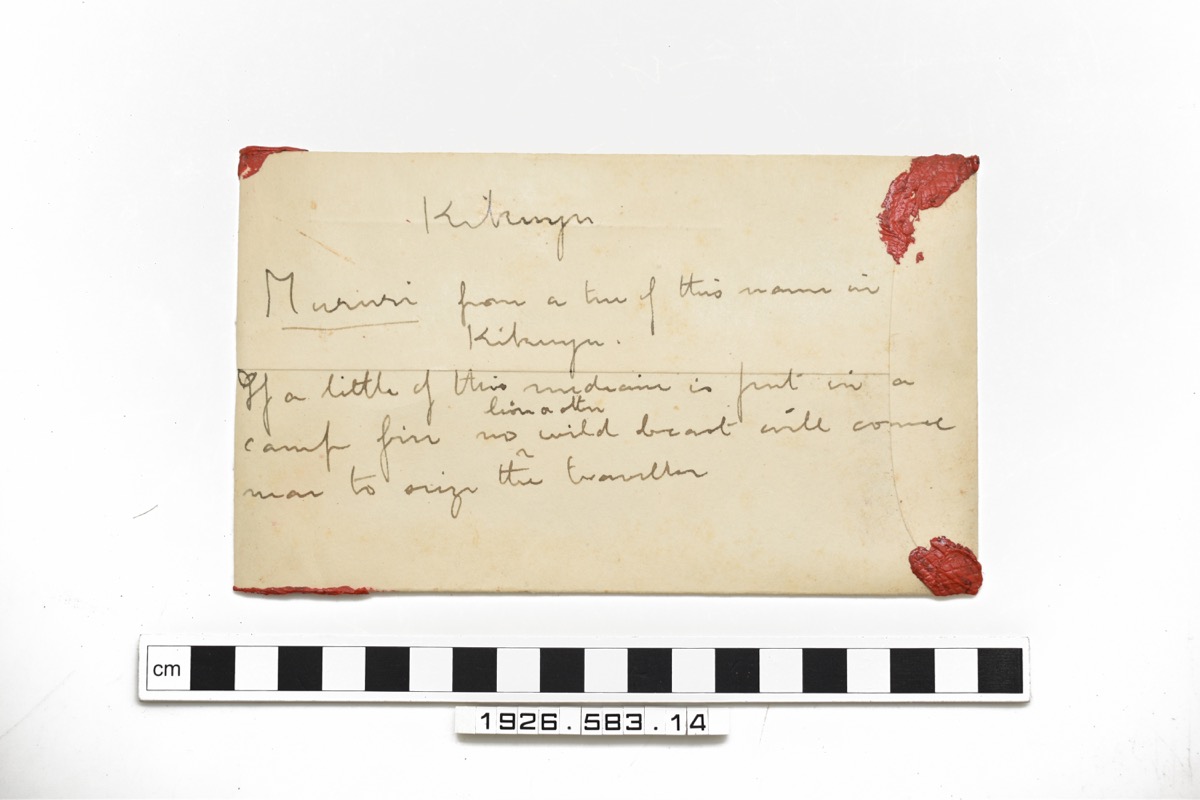 Kikuyu
Muriuri from a tree of this name in
Kikuyu.
If a little of this medicine is put in a
lion or other
camp fire no wild beast will come
near to seize the traveller
cm
1926.583.14